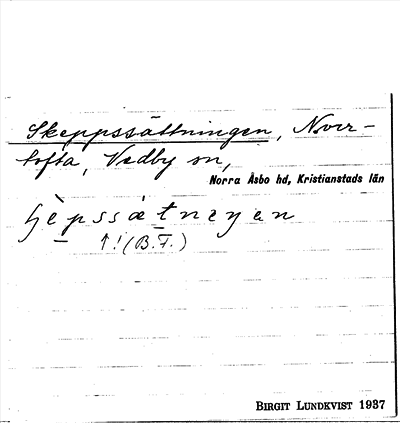 Skeppssättningen, Norr-
tofta, Vedby sn,
Norra Åsbo hd, Kristianstads län
↑!(B.F.)
BIRGIT LUNDKVIST 1937